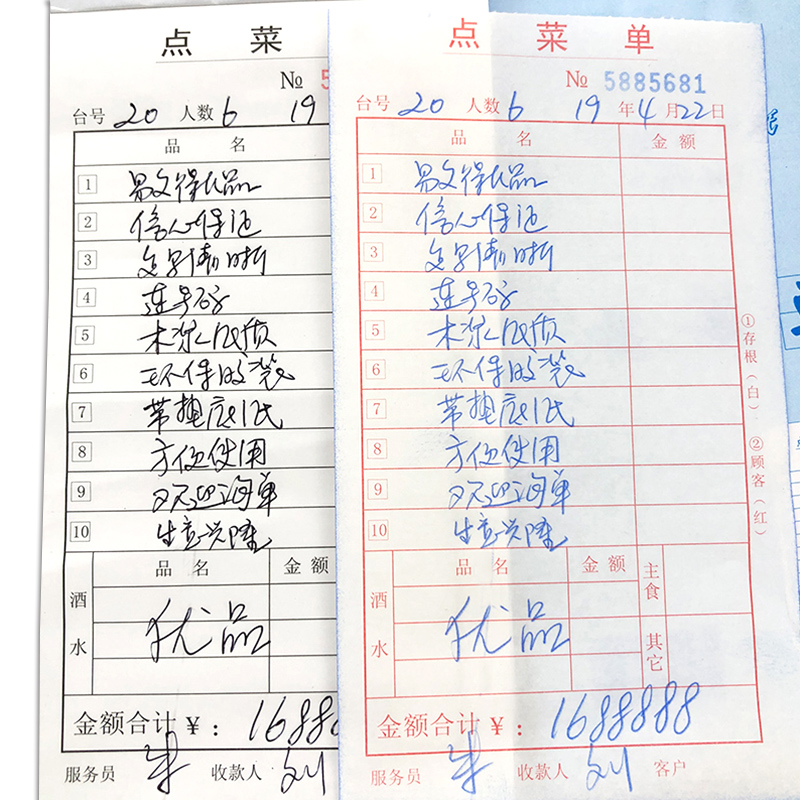 点 菜
№ 5
台号 20 人数 6 19
品 名
1
2 信心保证
3 复写清晰
4 连号码
5 木浆纸质
6 环保胶装
7 带垫底纸
8 方便使用
9 欢迎 单
10 生意兴隆
酒水 品 名 金 额
优品
金额合计 ¥: 16888
服务员 朱 收款人 刘
点 菜 单
№ 5885681
台号 20 人数 6 19 年 4 月 22 日
品 名 金 额
1
2 信心保证
3 复写清晰
4 连号码
5 木浆纸质
6 环保胶装
7 带垫底纸
8 方便使用
9 欢迎 单
10 生意兴隆
酒水 品 名 金 额 主食
优品 其它
金额合计 ¥: 1688888
服务员 朱 收款人 刘 客户
①存根(白) ②顾客(红)